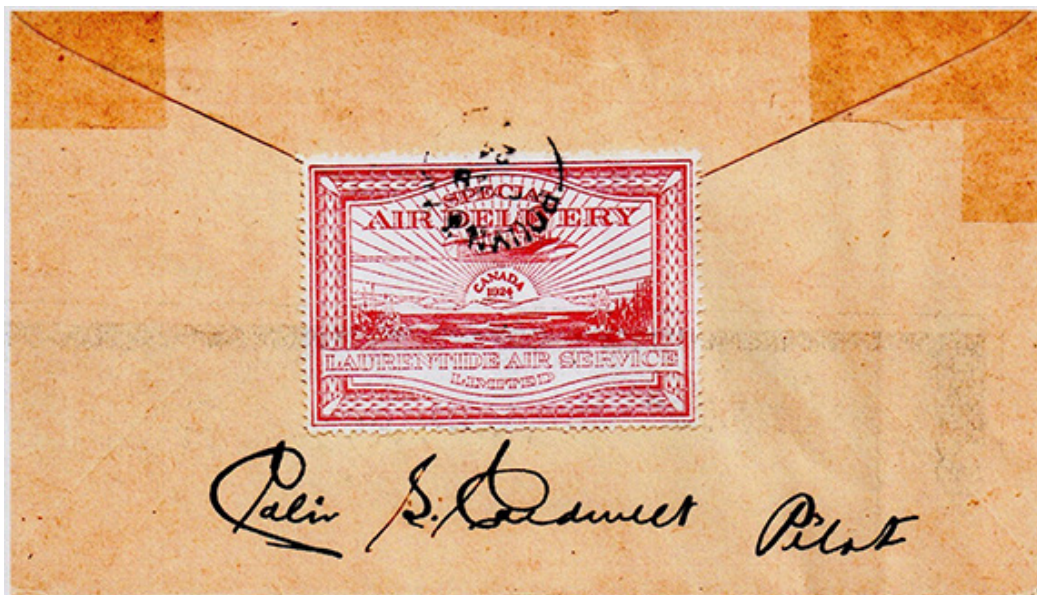 SPECIAL
AIR DELIVERY
CANADA
1924
LAURENTIDE AIR SERVICE
LIMITED
Colin S. Caldwell Pilot